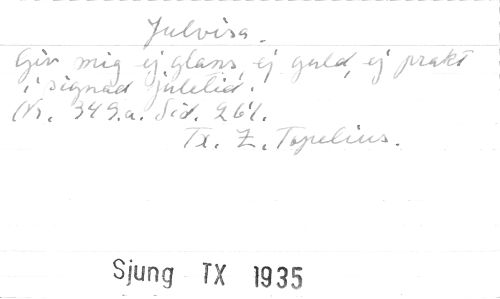 Julvisa.
Giv mig ej glans, ej guld, ej prakt
i signad juletid.
(Nr. 349.a. Sid. 261.
Tx. Z. Topelius.
Sjung TX 1935